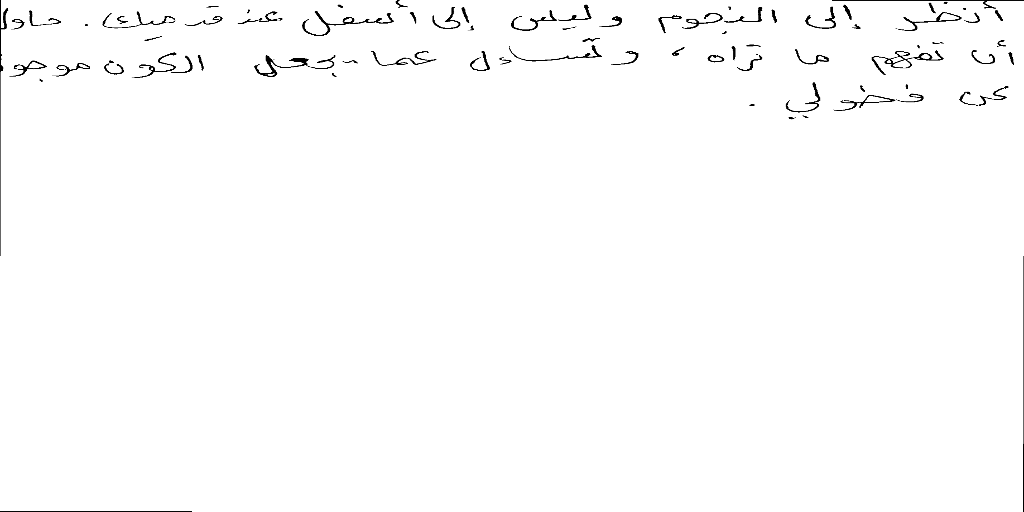 أنظر إلى النجوم وليس إلى أسفل عند قدميك. حاول
أن تفهم ما تراه، وتتساءل عما يجعل الكون موجو
كن فضولي.